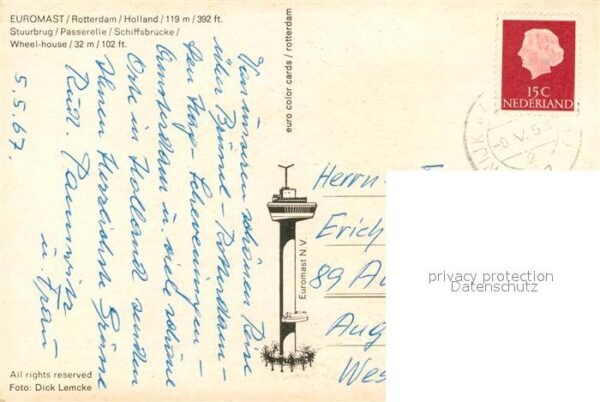 EUROMAST / Rotterdam / Holland / 119 m / 392 ft.
Stuurbrug / Passerelle / Schiffsbrücke /
Wheel-house / 32 m / 102 ft.
5.5.67.
Von unserer schönen Reise
über Brüssel - Rotterdam -
Den Haag - Scheveningen -
Amsterdam u. viel schöne
Orte in Holland senden
Ihnen Herzlichste Grüsse
Rud.
u. Frau
All rights reserved
Foto: Dick Lemcke
euro color cards / rotterdam
Euromast N.V.
15 C
NEDERLAND
Herrn
Erich
89 Au
Aug
Wes
privacy protection
Datenschutz